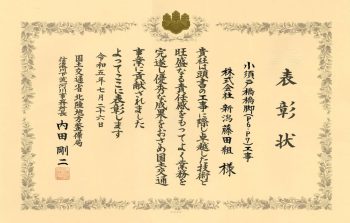 表彰状
小須戸橋橋脚(P6,P7)工事
株式会社 新潟藤田組 様
貴社は頭書の工事に際し卓越した技術と
旺盛なる責任感をもってよく業務を
完遂し優秀な成果をおさめ国土交通
事業に貢献されました
よってここに表彰します
令和五年七月二十六日
国土交通省 北陸地方整備局
信濃川下流河川事務所長 内田 剛二